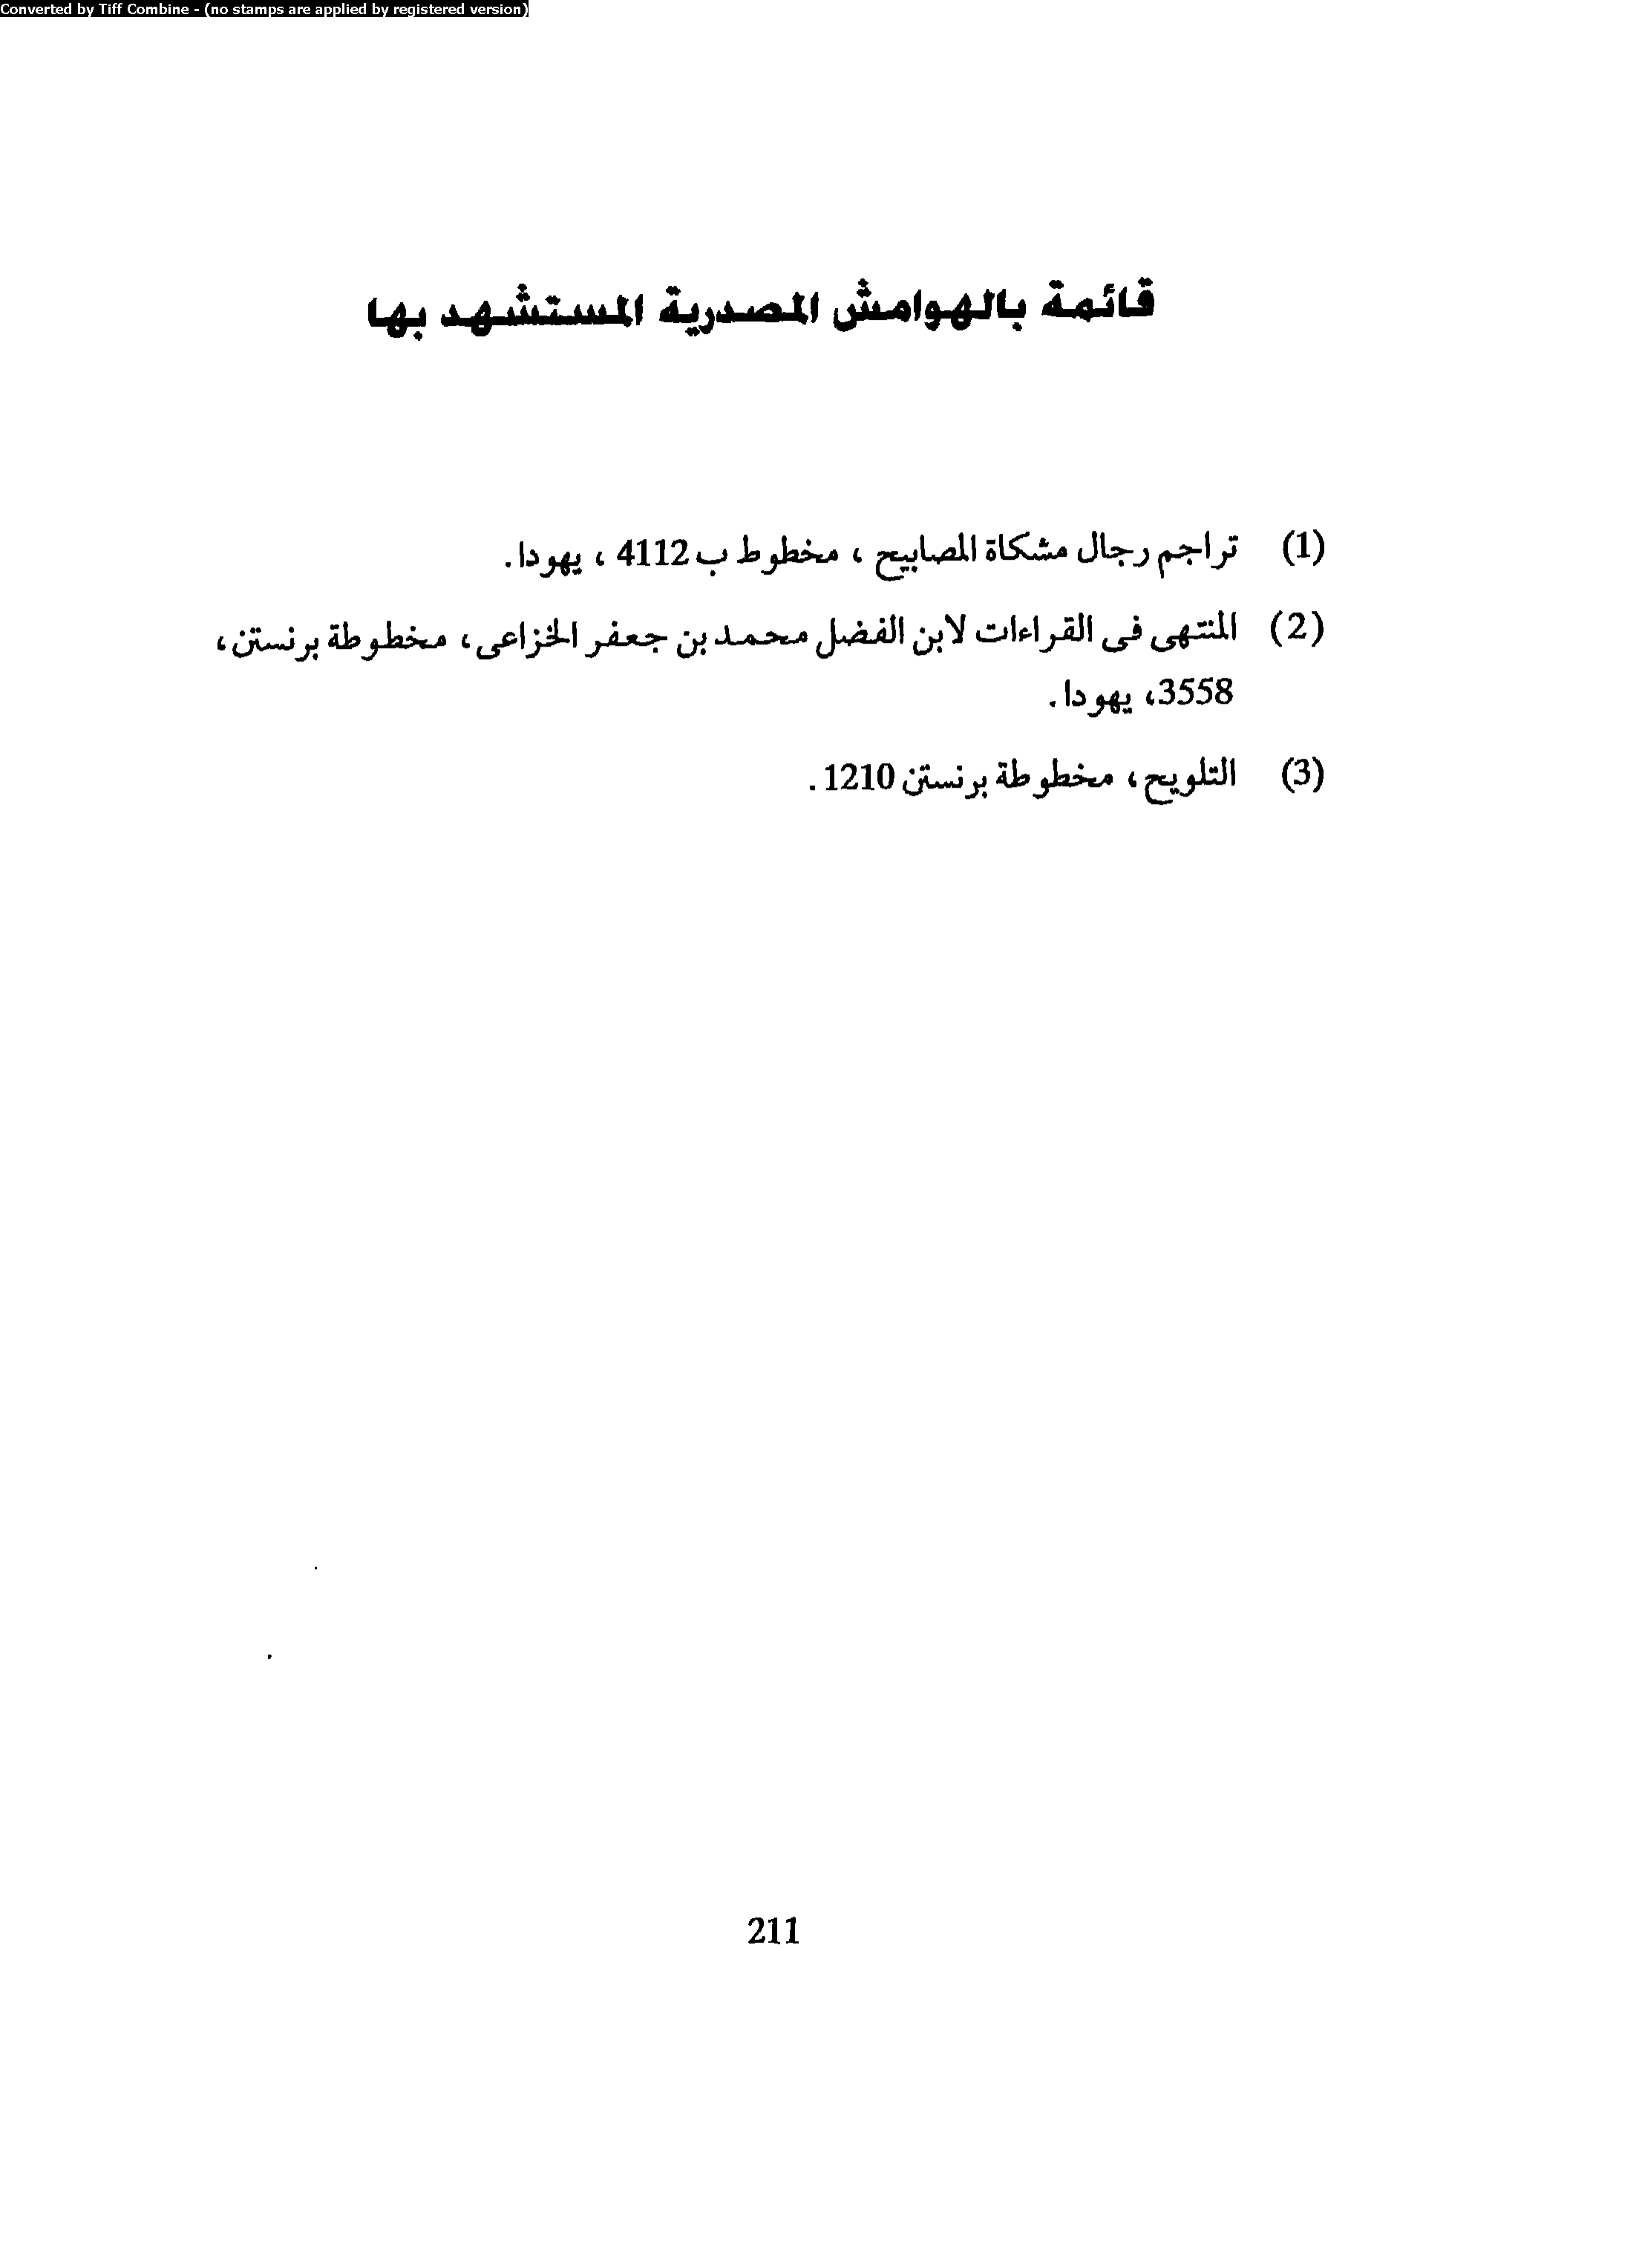 Converted by Tiff Combine - (no stamps are applied by registered version)
قائمة بالهوامش المصدرية المستشهد بها
(1) تراجم رجال مشكاة المصابيح ، مخطوط ب 4112 ، يهودا.
(2) المنتهى فى القراءات لابن الفضل محمد بن جعفر الخزاعى، مخطوطة برنستن،
3558، يهودا.
(3) التلويح، مخطوطة برنستن 1210.
211